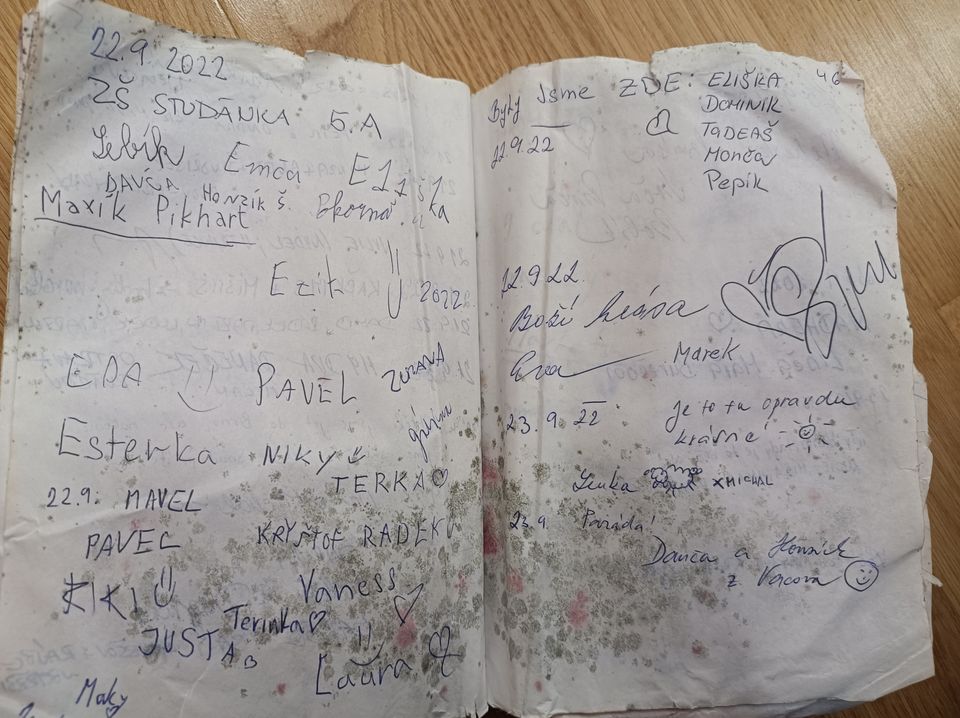 22.9. 2022
ZŠ STUDÁNKA 5.A
Sebík Emča
DAVČA HONZÍK Š.
Maxík Pikhart
Ezik 2022
EDA PAVEL ZUZANA
Esterka NIKY
TERKA
22.9. MAVEL
PAVEL KRYŠTOF RADEK
KIKI Vaness
Terinka
JUSTA
Laura
Maky
Byly jsme ZDE: ELIŠKA 46
DOMINIK
22.9.22 TADEÁŠ
MONČA
Pepík
22.9 22.
Boží krása
Eva Marek
23.9. 22 Je to tu opravdu
krásné!
Lenka XMICHAL
23.9. Paráda!
Danča a Honzík
z